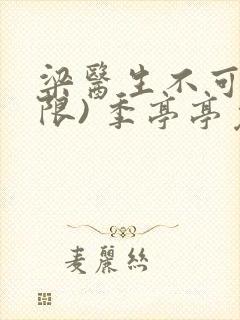 梁醫生不可
限)季亭亭
麦麗絲